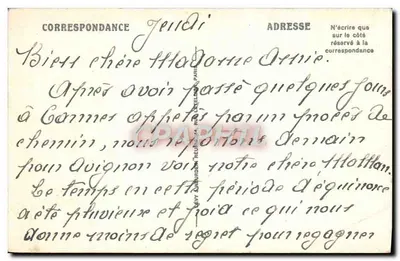 CORRESPONDANCE Jeudi ADRESSE N'écrire que
sur le côté
réservé à la
correspondance
Bien chère Madame Annie.
Après avoir passé quelques jours
à Cannes appelés par un procès de
chemin, nous repartons demain
pour Avignon voir notre chère Maman.
Le temps en cette période d'équinoxe
a été pluvieux et froid ce qui nous
donne moins de regret pour regagner